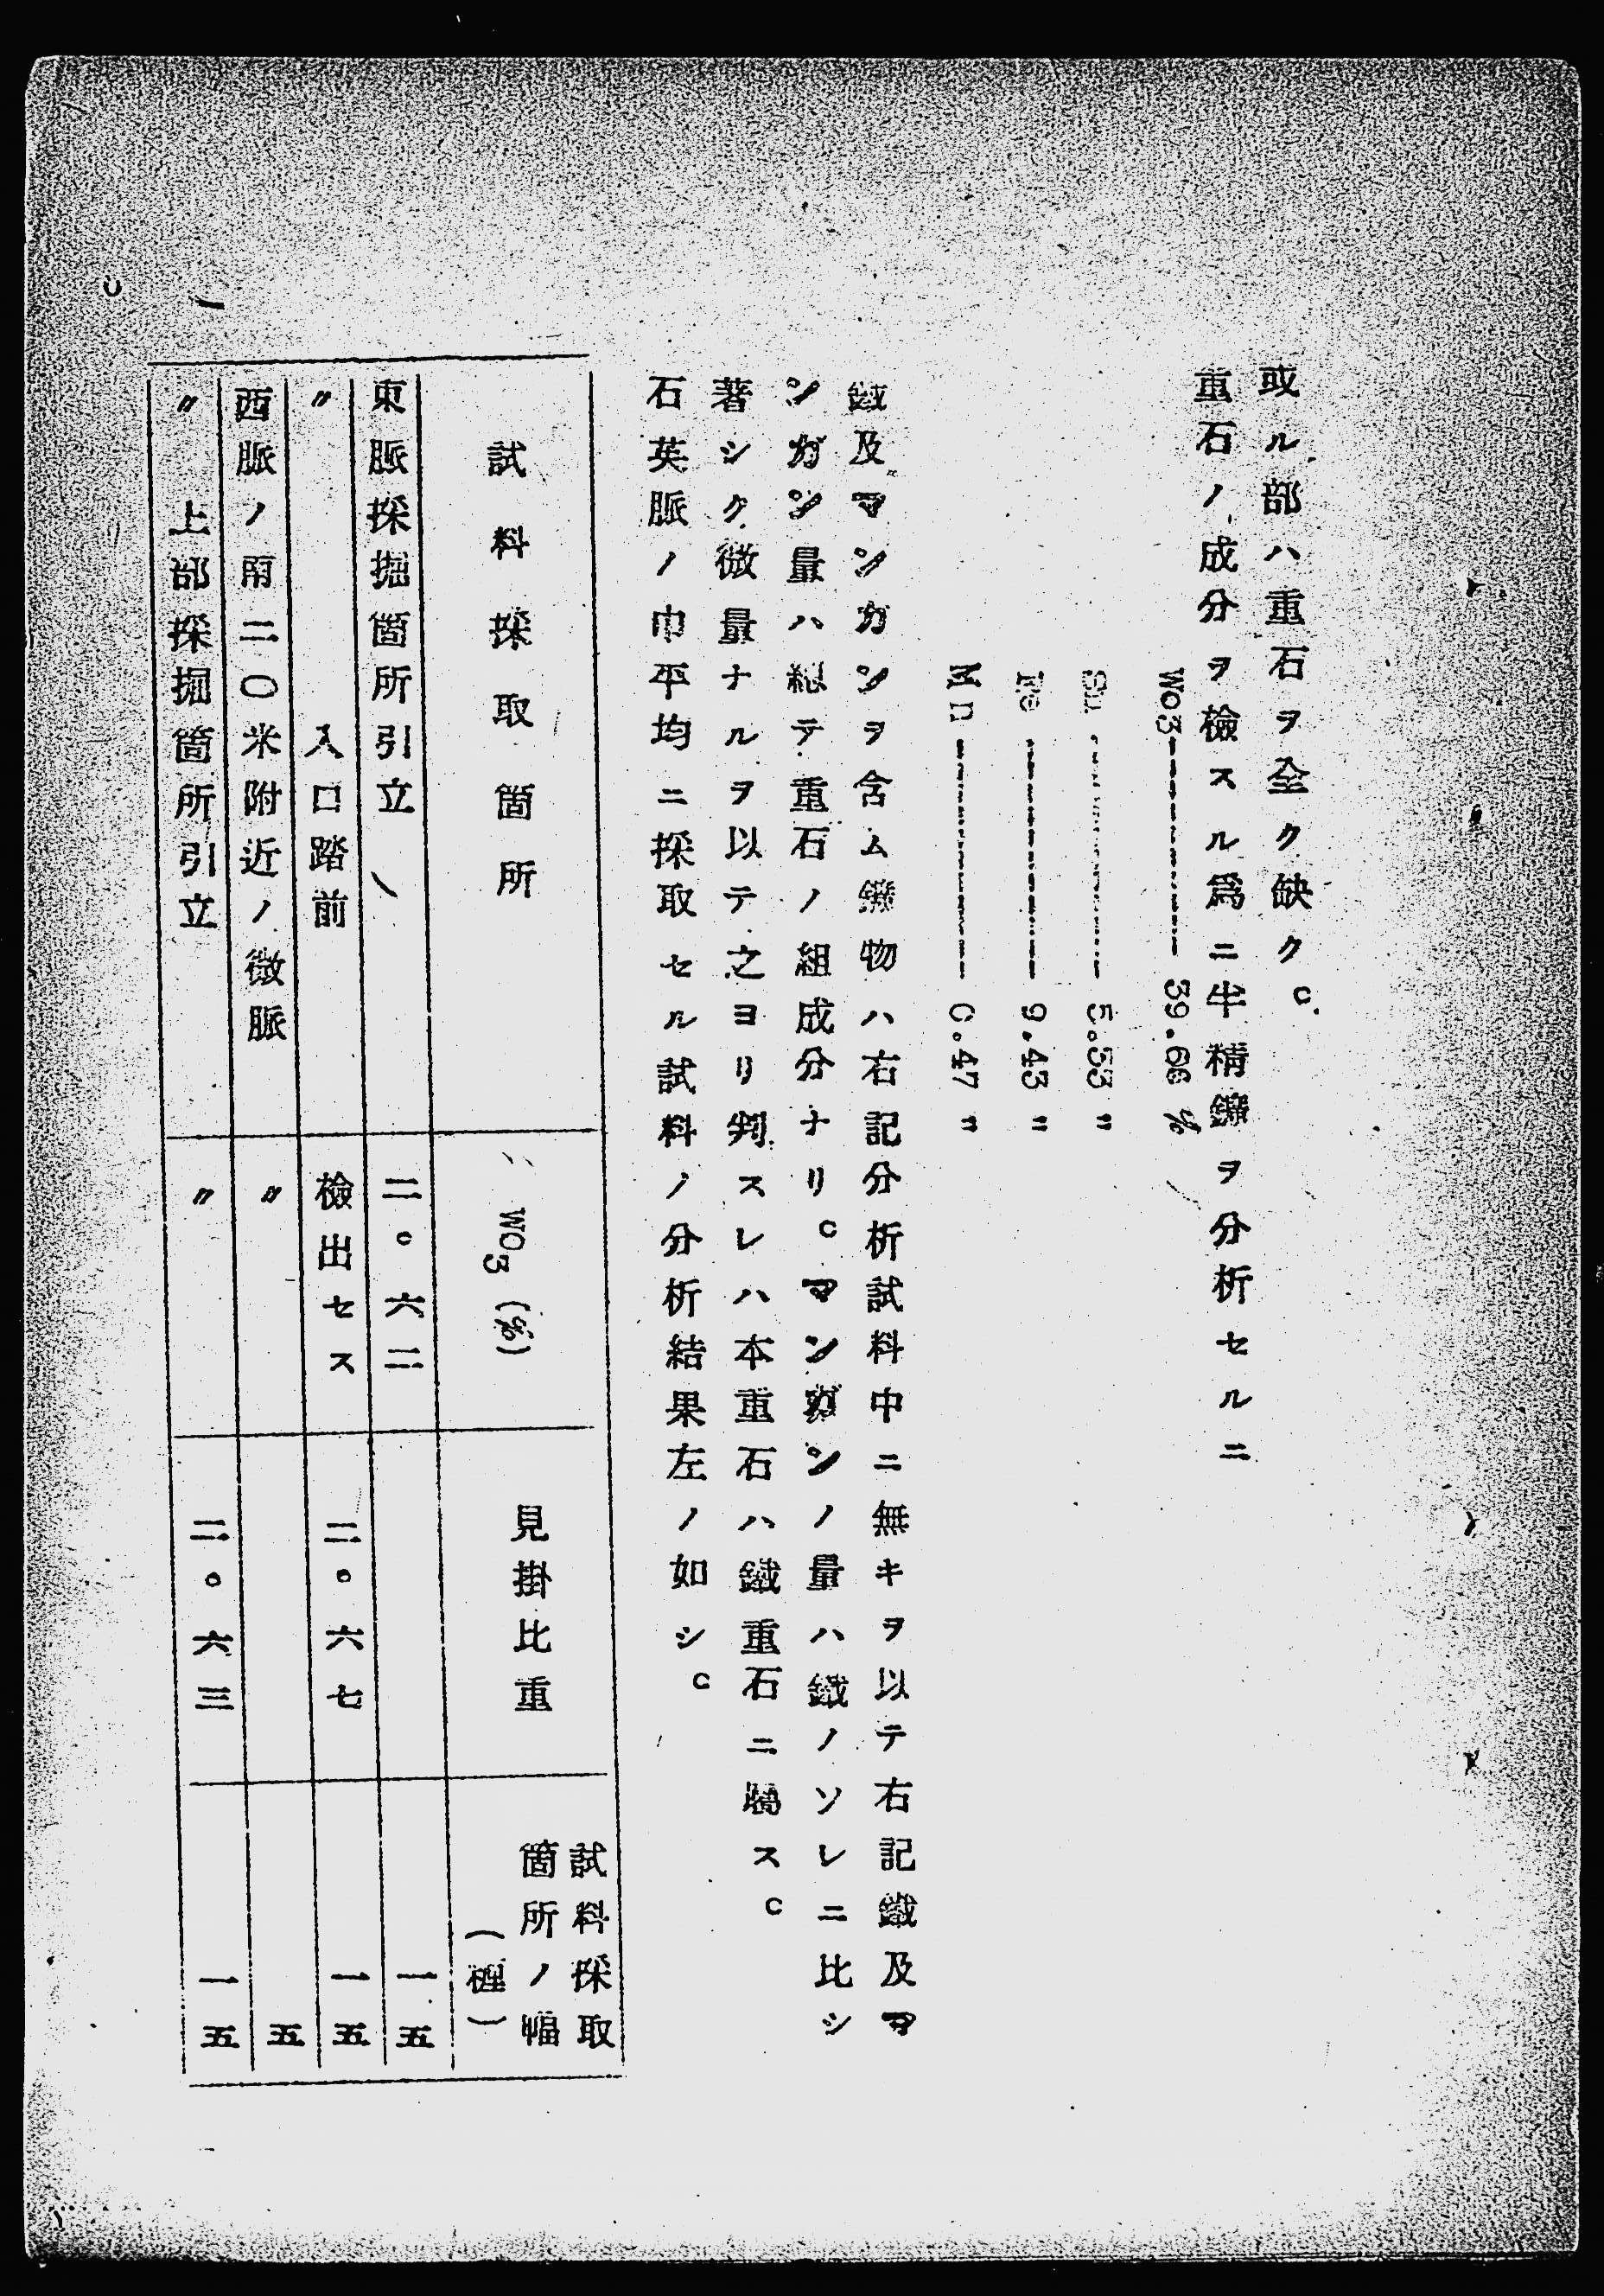 或ル部ハ重石ヲ全ク缺ク。
重石ノ成分ヲ檢スル爲ニ半精鑛ヲ分析セルニ
Wo3 ---------- 39.66 %
Sn ---------- 5.53 〃
Fe ---------- 9.43 〃
Mn ---------- 0.47 〃
鐵及マンガンヲ含ム鑛物ハ右記分析試料中ニ無キヲ以テ右記鐵及マ
ンガン量ハ總テ重石ノ組成分ナリ。マンガンノ量ハ鐵ノソレニ比シ
著シク微量ナルヲ以テ之ヨリ判スレハ本重石ハ鐵重石ニ屬ス。
石英脈ノ巾平均ニ採取セル試料ノ分析結果左ノ如シ。
試料採取箇所 WO3 (%) 見掛比重 試料採取箇所ノ幅(糎)
東脈採掘箇所引立 二。六二 一五
〃 入口踏前 檢出セス 二。六七 一五
西脈ノ南二〇米附近ノ微脈 〃 五
〃 上部採掘箇所引立 〃 二。六三 一五